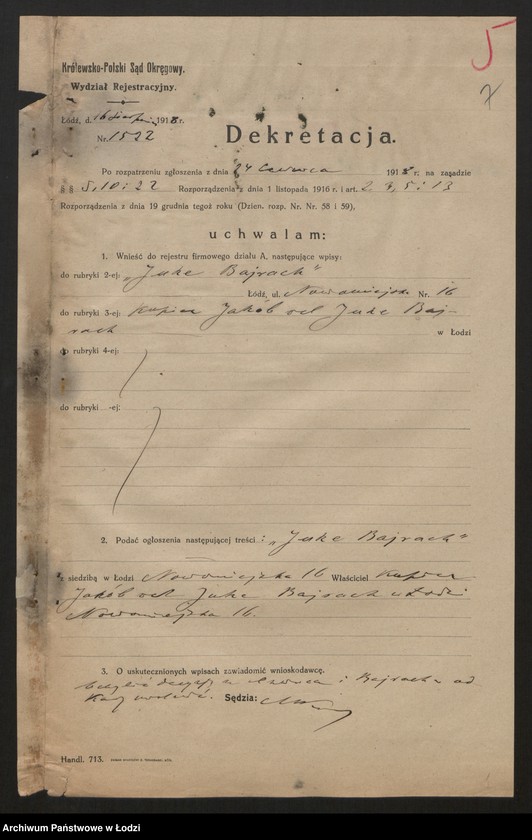 5
7
Królewsko-Polski Sąd Okręgowy.
Wydział Rejestracyjny.
Łódź, d. 16 sierpnia 1918 r.
Nr. 1522
Dekretacja.
Po rozpatrzeniu zgłoszenia z dnia 24 czerwca 1918 r. na zasadzie
§ § 5, 10 i 22 Rozporządzenia z dnia 1 listopada 1916 r. i art. 2, 4, 5 i 13
Rozporządzenia z dnia 19 grudnia tegoż roku (Dzien. rozp. Nr. Nr. 58 i 59),
uchwalam:
1. Wnieść do rejestru firmowego działu A, następujące wpisy:
do rubryki 2-ej: „Juke Bajrach"
Łódź, ul. Nowomiejska Nr. 16
do rubryki 3-ej: Kupiec Jakób vel Juke Baj-
rach w Łodzi
do rubryki 4-ej:
do rubryki -ej:
2. Podać ogłoszenia następującej treści: „Juke Bajrach"
z siedzibą w Łodzi Nowomiejska 16 Właściciel Kupiec
Jakób vel Juke Bajrach w Łodzi
Nowomiejska 16.
3. O uskutecznionych wpisach zawiadomić wnioskodawcę.
i Bajracha od
Sędzia:
Handl. 713.
Archiwum Państwowe w Łodzi